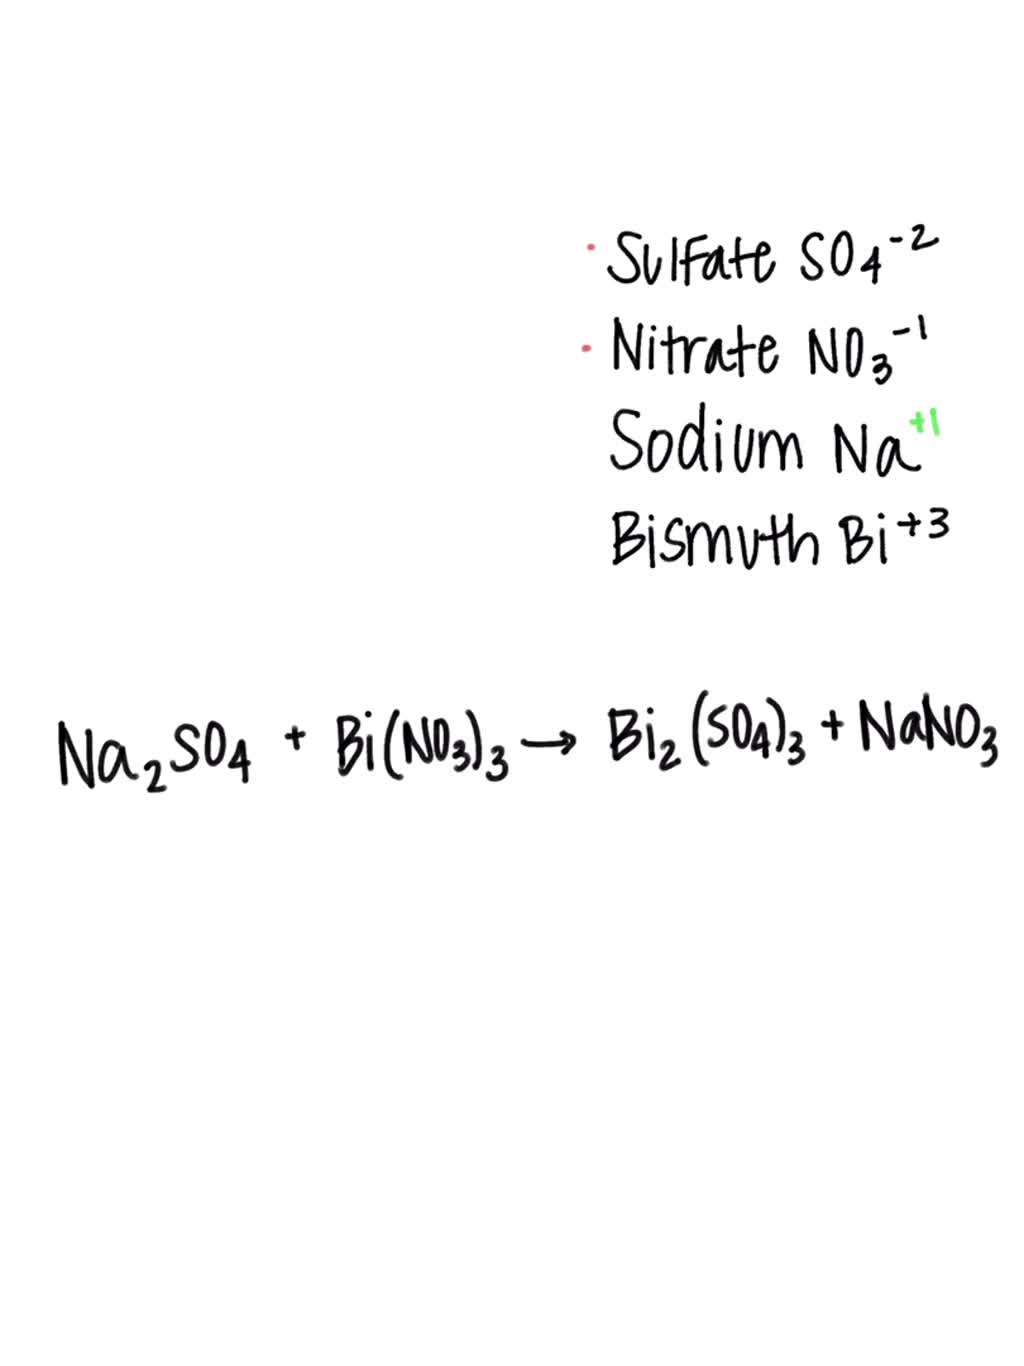 · Sulfate SO₄⁻²
· Nitrate NO₃⁻¹
Sodium Na⁺¹
Bismuth Bi⁺³
Na₂SO₄ + Bi(NO₃)₃ → Bi₂(SO₄)₃ + NaNO₃